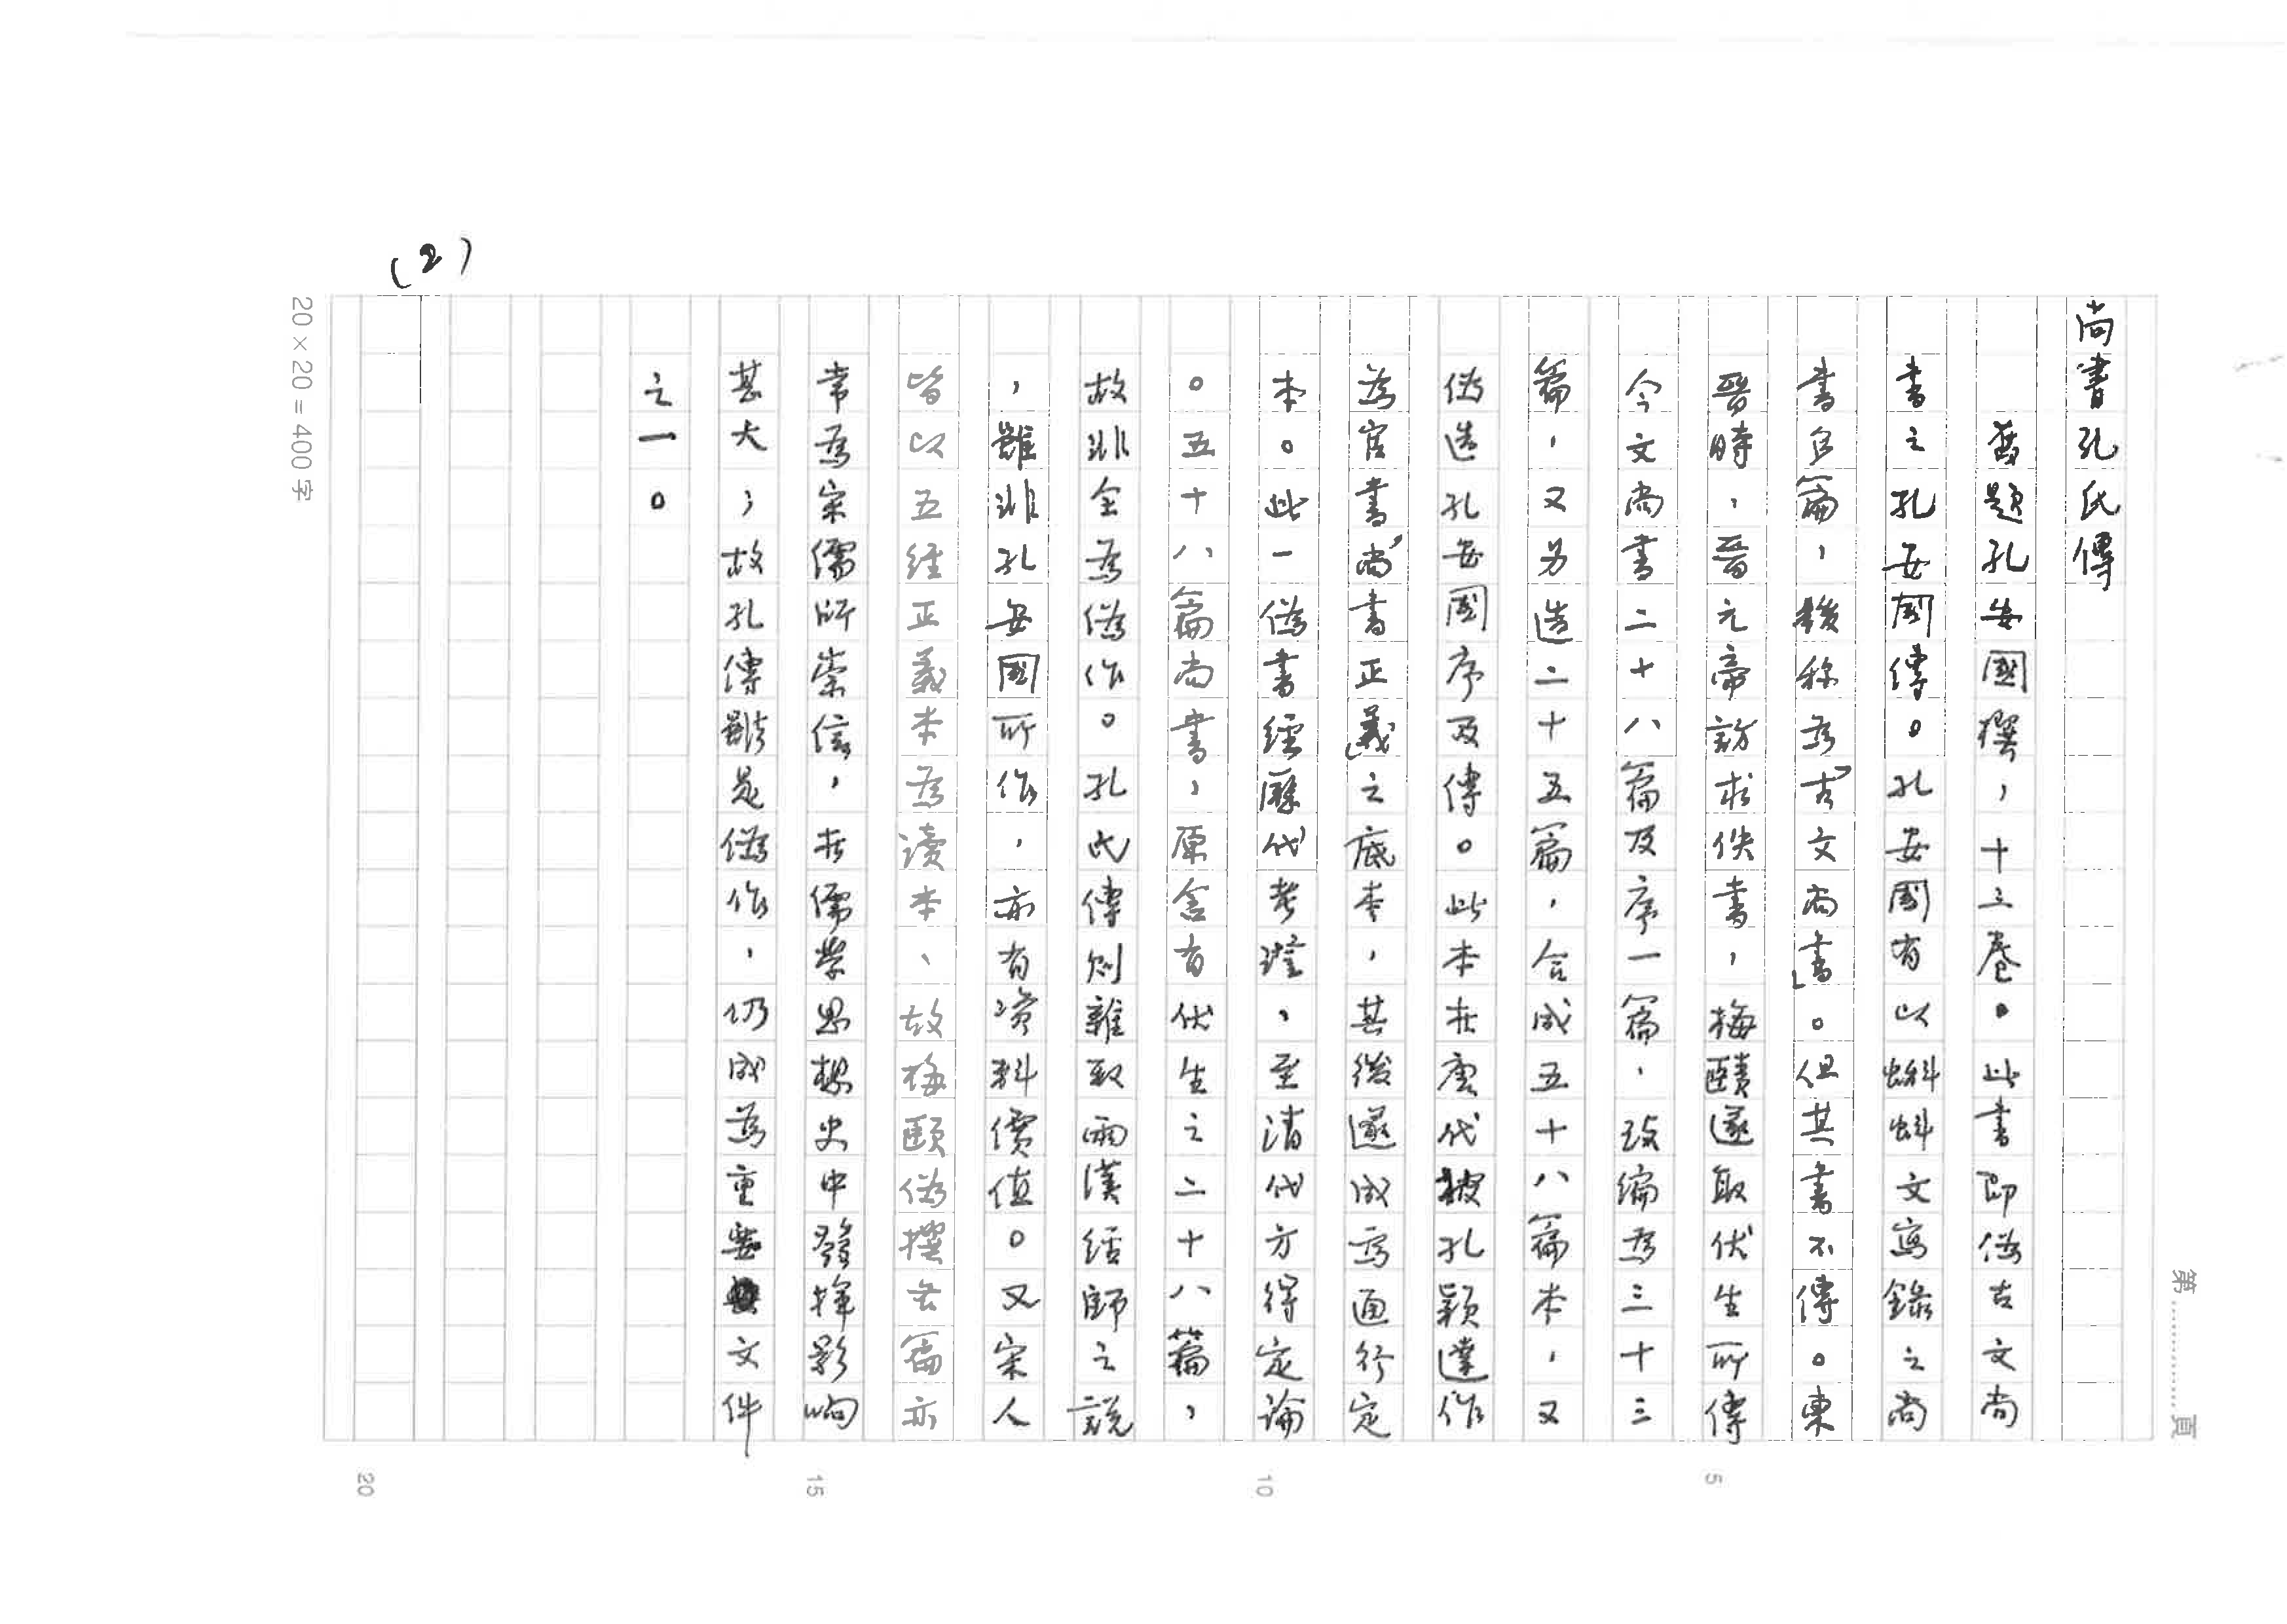 尚書孔氏傳
舊題孔安國撰，十三卷。此書即偽古文尚
書之孔安國傳。孔安國有以蝌蚪文寫錄之尚
書百篇，後称為「古文尚書」。但其書不傳。東
晉時，晉元帝訪求佚書，梅賾遂取伏生所傳
今文尚書二十八篇及序一篇，改編為三十三
篇，又另造二十五篇，合成五十八篇本，又
偽造孔安國序及傳。此本在唐代被孔穎達作
為官書「尚書正義」之底本，其後遂成為通行定
本。此一偽書經歷代考證，至清代方得定論
。五十八篇尚書，原含有伏生之二十八篇，
故非全為偽作。孔氏傳則雜取兩漢經師之說
，雖非孔安國所作，亦有資料價值。又宋人
皆以五經正義本為讀本，故梅頤偽撰各篇亦
常為宋儒所崇信，在儒學思想史中發揮影响
甚大；故孔傳雖是偽作，仍成為重要文件
之一。
(2)
20×20=400字
第............頁
5
10
15
20